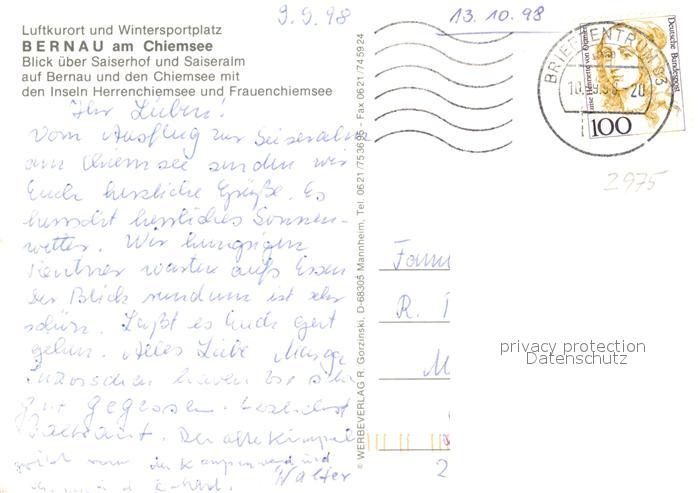 9.9.98
13.10.98
Luftkurort und Wintersportplatz
BERNAU am Chiemsee
Blick über Saiserhof und Saiseralm
auf Bernau und den Chiemsee mit
den Inseln Herrenchiemsee und Frauenchiemsee
Ihr Lieben!
Vom Ausflug zur Seiseralm
am Chiemsee senden wir
Euch herzliche Grüße. Es
herrscht herrliches Sonnen-
wetter. Wir hungrigen
Rentner warten aufs Essen
Der Blick rundum ist sehr
schön. Laßt es Euch gut
gehen. Alles Liebe
Inzwischen haben wir sehr
gut gegessen.
Der alte
Walter
© WERBEVERLAG R. Gorzinski, D-68305 Mannheim, Tel. 0621/753695 - Fax 0621/745924
BRIEFZENTRUM 83
10.9.98-20
Deutsche Bundespost
100
2975
Fam
R.
M
2
privacy protection
Datenschutz